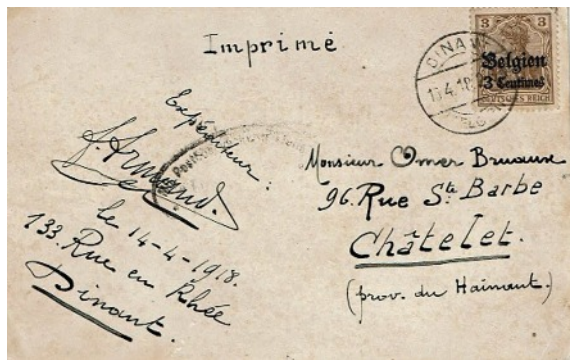 Imprimé
3 3
Belgien
3 Centimes
DEUTSCHES REICH
DINA
Expéditeur:
le 14-4-1918.
133. Rue en Rhée
Dinant.
Monsieur Omer Bruaux
96. Rue Ste Barbe
Châtelet.
(prov. du Hainaut.)